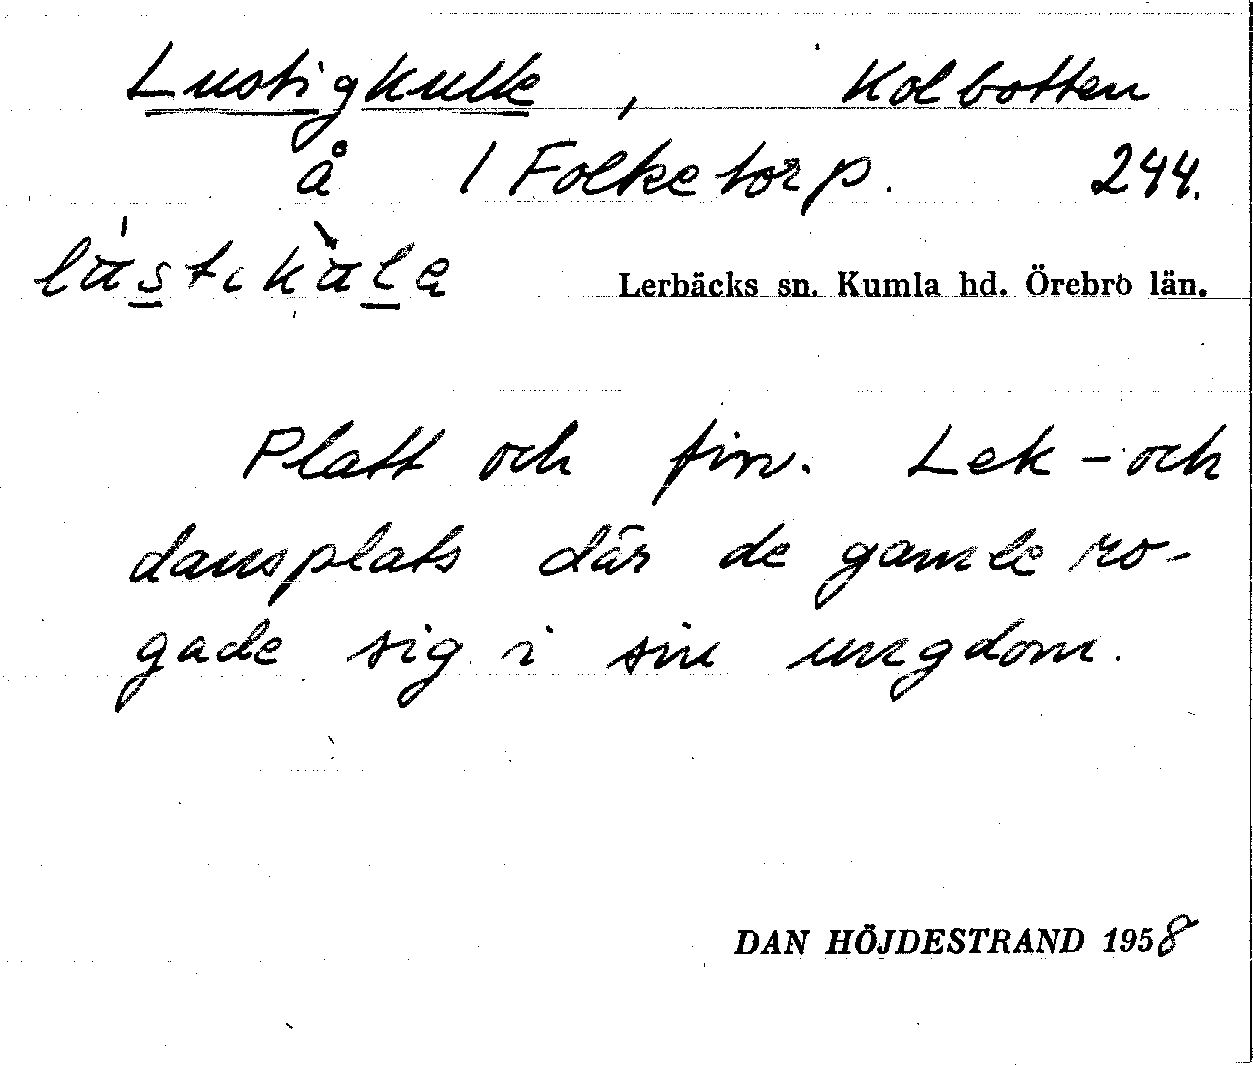 Lustigkulle, Kolbotten
å 1 Folketorp. 244.
lustikula Lerbäcks sn. Kumla hd. Örebro län.
Platt och fin. Lek- och
dansplats där de gamle ro-
gade sig i sin ungdom.
DAN HÖJDESTRAND 1958